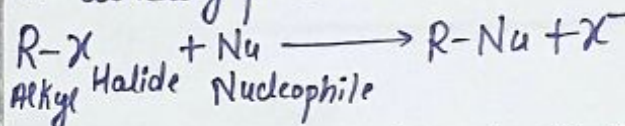 R-X + Nu ⟶ R-Nu + X⁻
Alkyl Halide Nucleophile